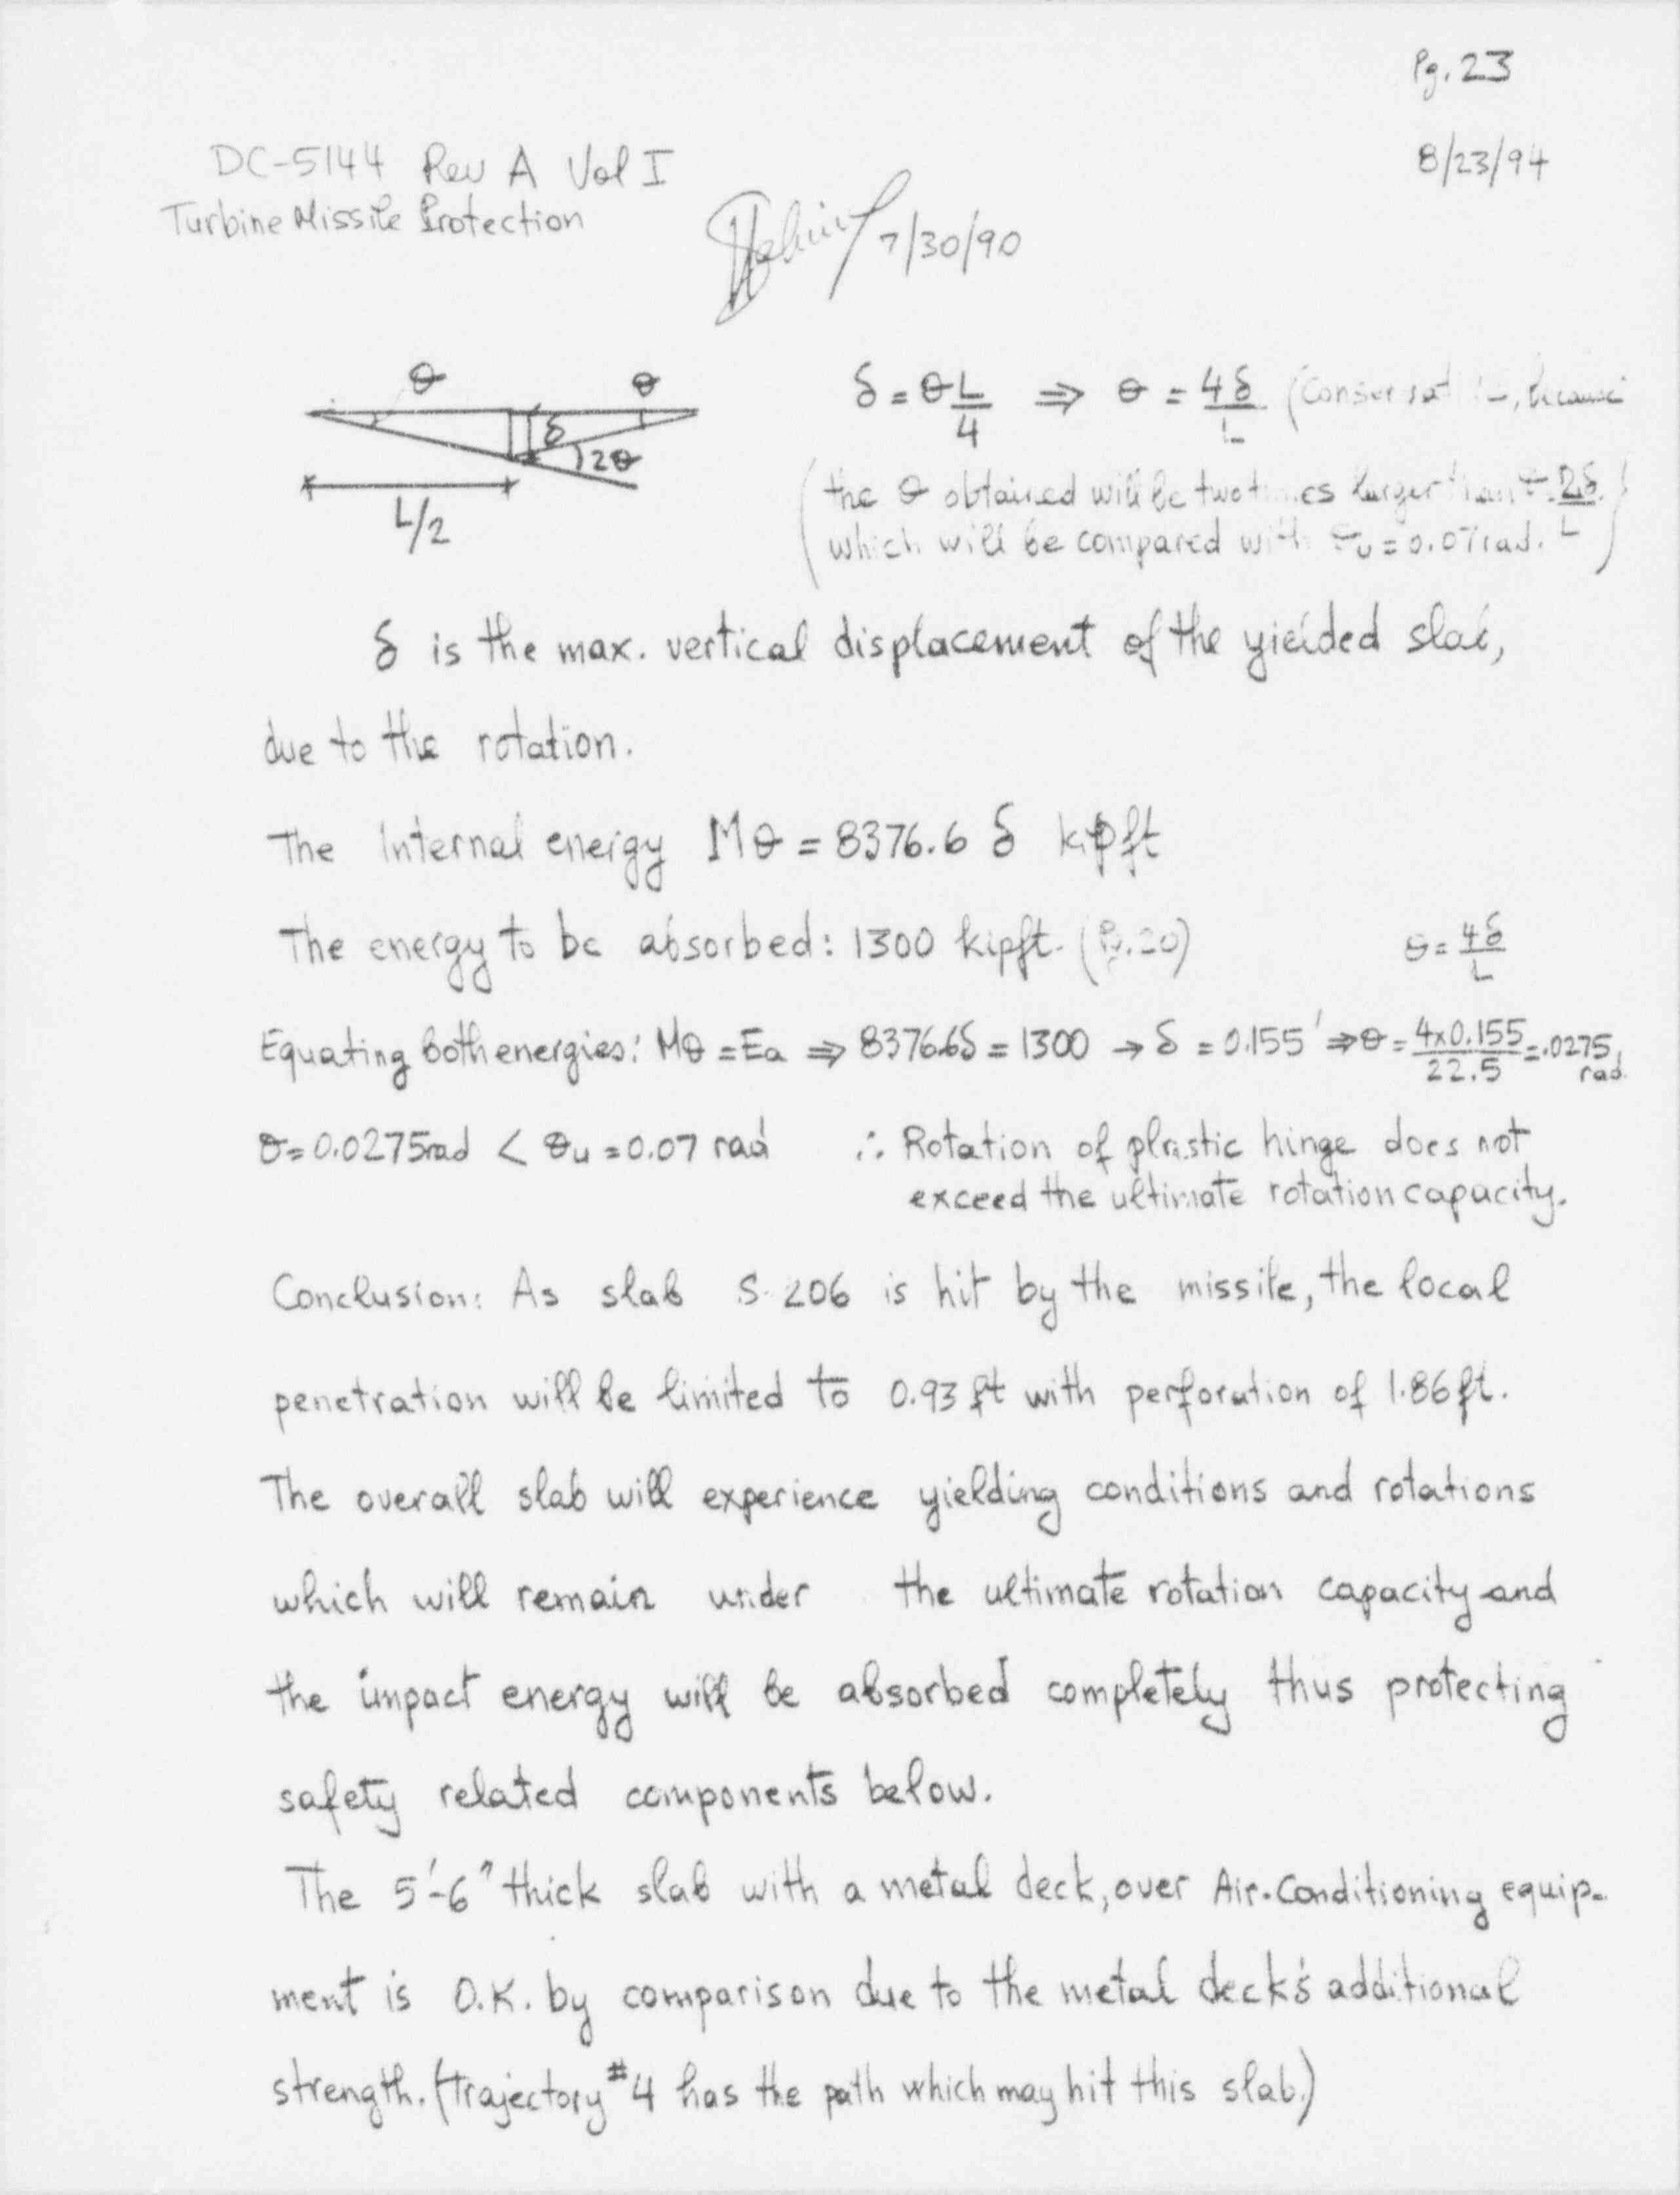 Pg. 23
8/23/94
DC-5144 Rev A Vol I
Turbine Missile Protection
7/30/90
θ θ
δ
2θ
L/2
δ = θ L/4 ⇒ θ = 4δ/L (because
(the θ obtained will be two times larger than 2δ/L
which will be compared with θu = 0.07 rad.)
δ is the max. vertical displacement of the yielded slab,
due to the rotation.
The Internal energy Mθ = 8376.6 δ kipft
The energy to be absorbed: 1300 kipft. (Pg. 20) θ = 4δ/L
Equating both energies: Mθ = Ea ⇒ 8376.6δ = 1300 → δ = 0.155' ⇒ θ = 4x0.155/22.5 = .0275 rad.
θ = 0.0275rad < θu = 0.07 rad ∴ Rotation of plastic hinge does not
exceed the ultimate rotation capacity.
Conclusion: As slab S-206 is hit by the missile, the local
penetration will be limited to 0.93 ft with perforation of 1.86 ft.
The overall slab will experience yielding conditions and rotations
which will remain under the ultimate rotation capacity and
the impact energy will be absorbed completely thus protecting
safety related components below.
The 5'-6" thick slab with a metal deck, over Air-Conditioning equip-
ment is O.K. by comparison due to the metal deck's additional
strength. (Trajectory #4 has the path which may hit this slab.)